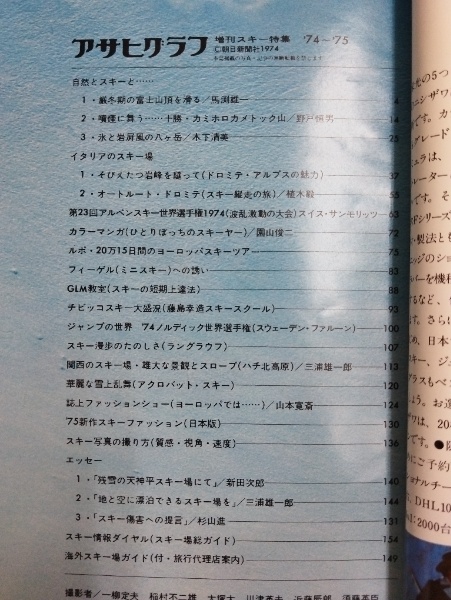 アサヒグラフ 増刊スキー特集 '74～'75
©朝日新聞社1974
自然とスキーと……
1・厳冬期の富士山頂を滑る／馬渕雄一 4
2・噴煙に舞う……十勝・カミホロカメトック山／野戸恒男 14
3・氷と岩屏風の八ヶ岳／木下清美 25
イタリアのスキー場
1・そびえたつ岩峰を縫って(ドロミテ・アルプスの魅力) 37
2・オートルート・ドロミテ(スキー縦走の旅)／植木毅 55
第23回アルペンスキー世界選手権1974(波乱激動の大会)スイス・サンモリッツ 63
カラーマンガ(ひとりぼっちのスキーヤー)／園山俊二 72
ルポ・20万15日間のヨーロッパスキーツアー 75
フィーゲル(ミニスキー)への誘い 83
GLM教室(スキーの短期上達法) 88
チビッコスキー大盛況(藤島幸造スキースクール) 93
ジャンプの世界 '74ノルディック世界選手権(スウェーデン・ファルーン) 100
スキー漫歩のたのしさ(ラングラウフ) 107
関西のスキー場・雄大な景観とスロープ(ハチ北高原)／三浦雄一郎 113
華麗な雪上乱舞(アクロバット・スキー) 120
誌上ファッションショー(ヨーロッパでは……)／山本寛斎 124
'75新作スキーファッション(日本版) 130
スキー写真の撮り方(質感・視角・速度) 136
エッセー
1・「残雪の天神平スキー場にて」／新田次郎 140
2・「地と空に漂泊できるスキー場を」／三浦雄一郎 144
3・「スキー傷害への提言」／杉山進 131
スキー情報ダイヤル(スキー場総ガイド) 154
海外スキー場ガイド(付・旅行代理店案内) 149
撮影者／一柳定夫 稲村不二雄 大塚大 川津英夫 近藤辰郎 須藤英臣
その5つ
ニシザワ
です。カ
グレード
ュラは、
ルーター
ドシリーズ
い製法とも
ッジのショ
パーを機種
するなど、
す。さらに
め、日本
スキー、ジュ
グラスもベス
しょう。お選
ワは、20
です。●
にご予約
ョナルチー
、DHL10
M:2000台